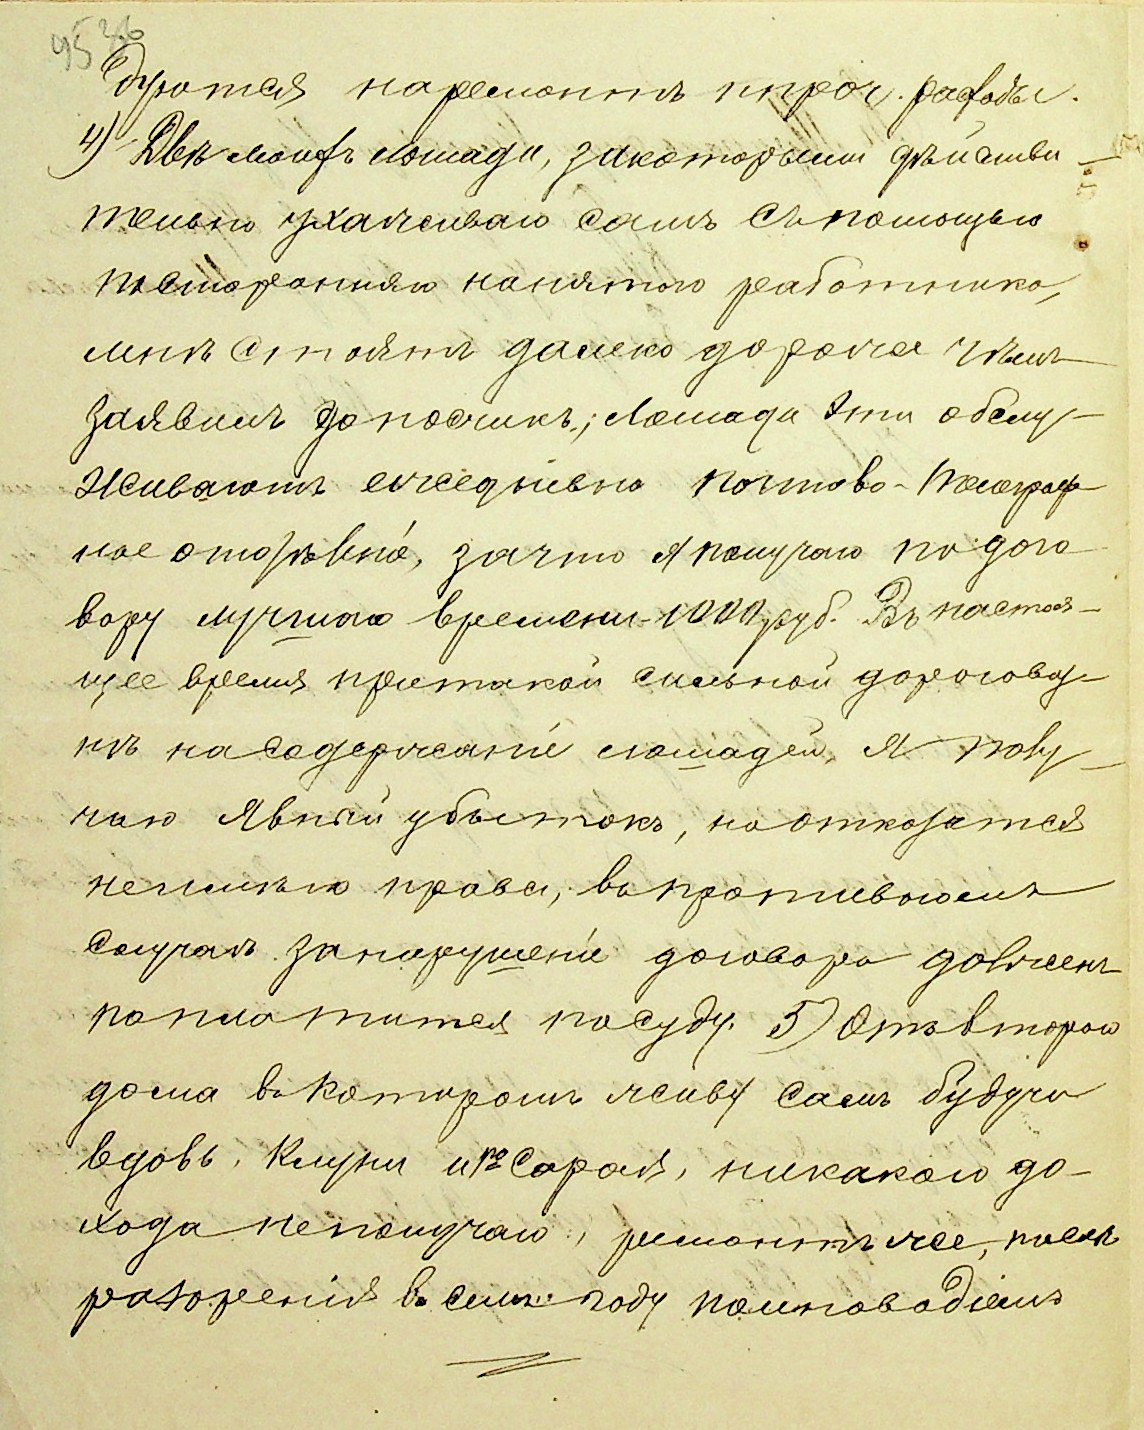 95 36
буютея на ремонтъ и проч. расходы.
4) Двѣ моихъ лошади, за которыми дѣйстви-
тельно ухаживаю самъ съ помощью
посторонняго нанятого работника,
мнѣ стоятъ далеко дороже чѣмъ
заявилъ доносчикъ; Лошади эти обслу-
живаютъ ежедневно почтово-телеграф-
ное отдѣленіе, за что я получаю по дого-
вору лучшаго времени - 1000 руб. Въ настоя-
щее время при такой сильной дорогови-
нѣ на содержаніе лошадей, я полу-
чаю явный убытокъ, но отказатся
не имѣю права, въ противномъ
случаѣ за нарушеніе договора долженъ
поплатится по суду. 5) Отъ второго
дома въ которомъ живу самъ будучи
вдовъ, Клуни и сарая, никакого до-
хода не получаю, ремонтъ же, послѣ
разоренія въ семъ году половодіемъ